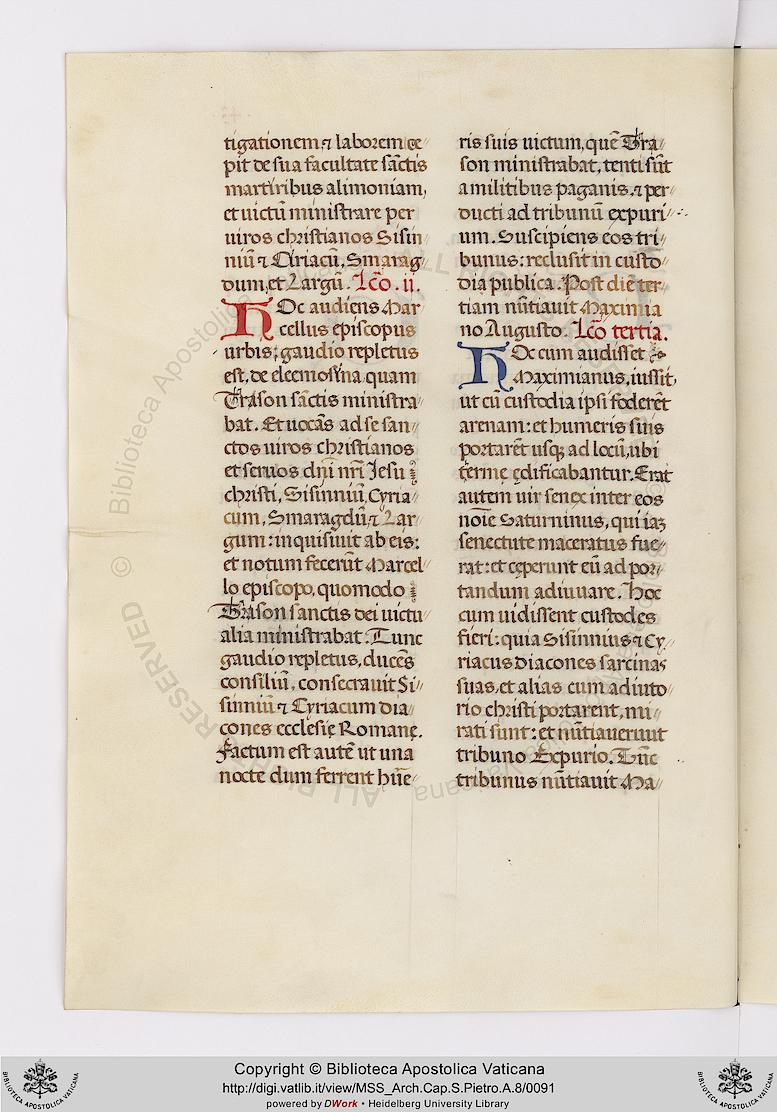 tigationem ⁊ laborem ce//
pit de sua facultate sāctis
martiribus alimoniam,
et uictū ministrare per
uiros christianos Sisin//
niū ⁊ Ciriacū, Smarag//
dum, et Largū. Lc̄o. ii.
HOc audiens Mar//
cellus episcopus
urbis: gaudio repletus
est, de elemosina quam
Trason sāctis ministra//
bat. Et uocās ad se san//
ctos uiros christianos
et seruos dn̄i nr̄i Jesu
christi, Sisinniū, Cyria//
cum, Smaragdū ⁊ Lar//
gum: inquisiuit ab eis:
et notum fecerūt Marcel//
lo episcopo, quomodo
Trason sanctis dei uictu//
alia ministrabat. Tunc
gaudio repletus, ducēs
consiliū, consecrauit Si//
sinniū ⁊ Cyriacum dia//
cones ecclesię Romanę.
Factum est autē ut una
nocte dum ferrent hūe//
ris suis uictum, quē Tra//
son ministrabat, tenti sūt
a militibus paganis, ⁊ per//
ducti ad tribunū expuri//
um. Suscipiens eos tri//
bunus: reclusit in custo//
dia publica. Post diē ter//
tiam nūtiauit Maximia
no Augusto. Lc̄o tertia.
HOc cum audisset
Maximianus, iussit,
ut cū custodia ipsi foderēt
arenam: et humeris suis
portarēt usq; ad locū, ubi
termę ędificabantur. Erat
autem uir senex inter eos
noīe Saturninus, qui iaꝫ
senectute maceratus fue//
rat: et cęperunt eū ad por//
tandum adiuuare. Hoc
cum uidissent custodes
fieri: quia Sisinnius ⁊ Cy//
riacus diacones sarcinas
suas, et alias cum adiuto//
rio christi portarent, mi//
rati sunt: et nūtiauerunt
tribuno Expurio. Tūc
tribunus nūtiauit Ma//
© Biblioteca Apostolica Vaticana
ALL RIGHTS RESERVED
Copyright © Biblioteca Apostolica Vaticana
http://digi.vatlib.it/view/MSS_Arch.Cap.S.Pietro.A.8/0091
powered by DWork • Heidelberg University Library
BIBLIOTECA APOSTOLICA VATICANA
BIBLIOTECA APOSTOLICA VATICANA